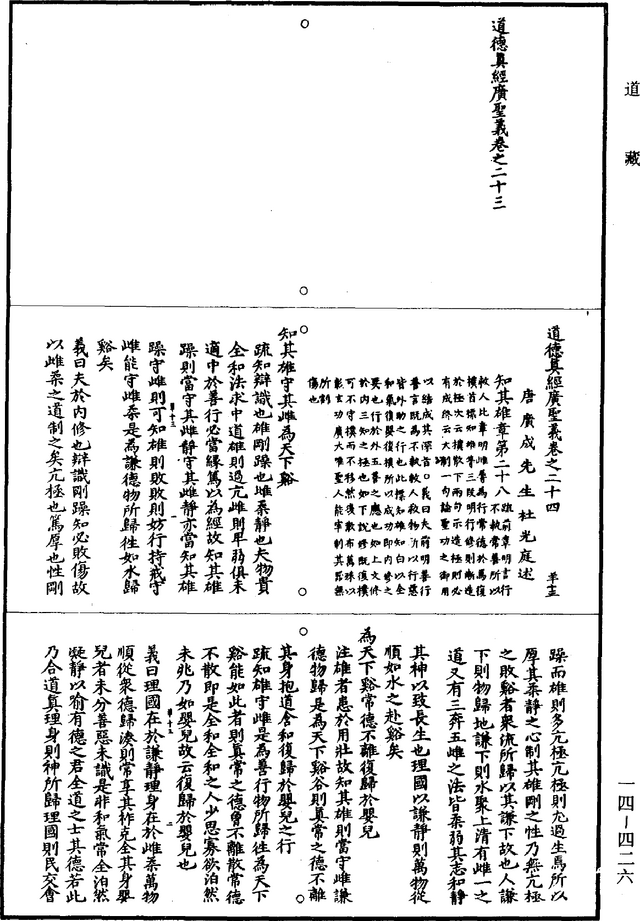 道藏
道德真經廣聖義卷之二十三
道德真經廣聖義卷之二十四
羊十三
唐廣成先生杜光庭述
知其雄章第二十八
知其雄守其雌為天下谿
疏知辯識也雄剛躁也雌柔靜也夫物貴
全和法求中道雄則過亢雌則卑弱俱未
適中於善行必當緣篤以為經故知其雄
躁則當守其雌靜守其雌靜亦當知其雄
躁守雌則可知雄則敗敗則妨行持戒守
雌能守雌柔是為謙德物所歸往如水歸
谿矣
義曰夫於內修也辯識剛躁知必敗傷故
以雌柔之道制之矣亢極也篤厚也性剛
躁而雄則多亢極亢極則尤過生焉所以
厚其柔靜之心制其雄剛之性乃無亢極
之敗谿者衆流所歸以其謙下故也人謙
下則物歸地謙下則水聚上清有雌一之
道又有三奔五雌之法皆柔弱其志和靜
其神以致長生也理國以謙靜則萬物從
順如水之赴谿矣
為天下谿常德不離復歸於嬰兒
注雄者患於用壯故知其雄則當守雌謙
德物歸是為天下谿谷則真常之德不離
其身抱道含和復歸於嬰兒之行
疏知雄守雌是為善行物所歸往為天下
谿能如此者則真常之德曾不離散常德
不散即是全和全和之人少思寡欲泊然
未兆乃如嬰兒故云復歸於嬰兒也
義曰理國在於謙靜理身在於雌柔萬物
順從衆德歸湊則常享其祚克全其身嬰
兒者未分善惡未識是非和氣常全泊然
凝靜以喻有德之君全道之士其德若此
乃合道真理身則神所歸理國則民交會
一四—四二六